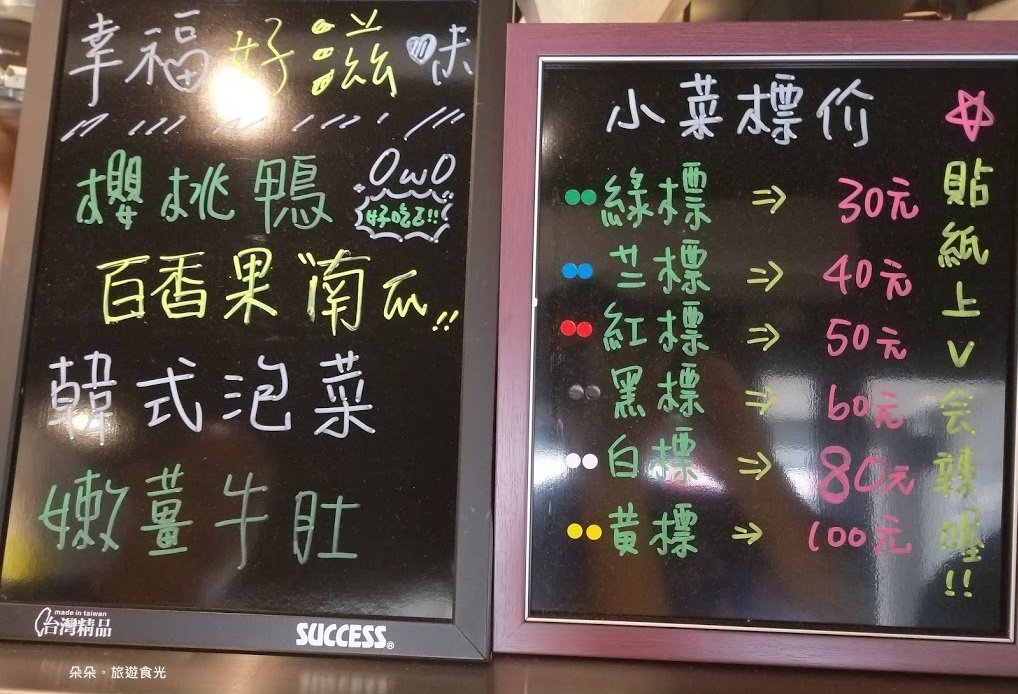 幸福好滋味
櫻桃鴨
OwO
好吃!!
百香果南瓜!!
韓式泡菜
嫩薑牛肚
made in taiwan
台灣精品
SUCCESS®
朵朵。旅遊食光
小菜標价
綠標 ⇒ 30元
兰標 ⇒ 40元
紅標 ⇒ 50元
黑標 ⇒ 60元
白標 ⇒ 80元
黃標 ⇒ 100元
☆貼紙上V会辣喔!!